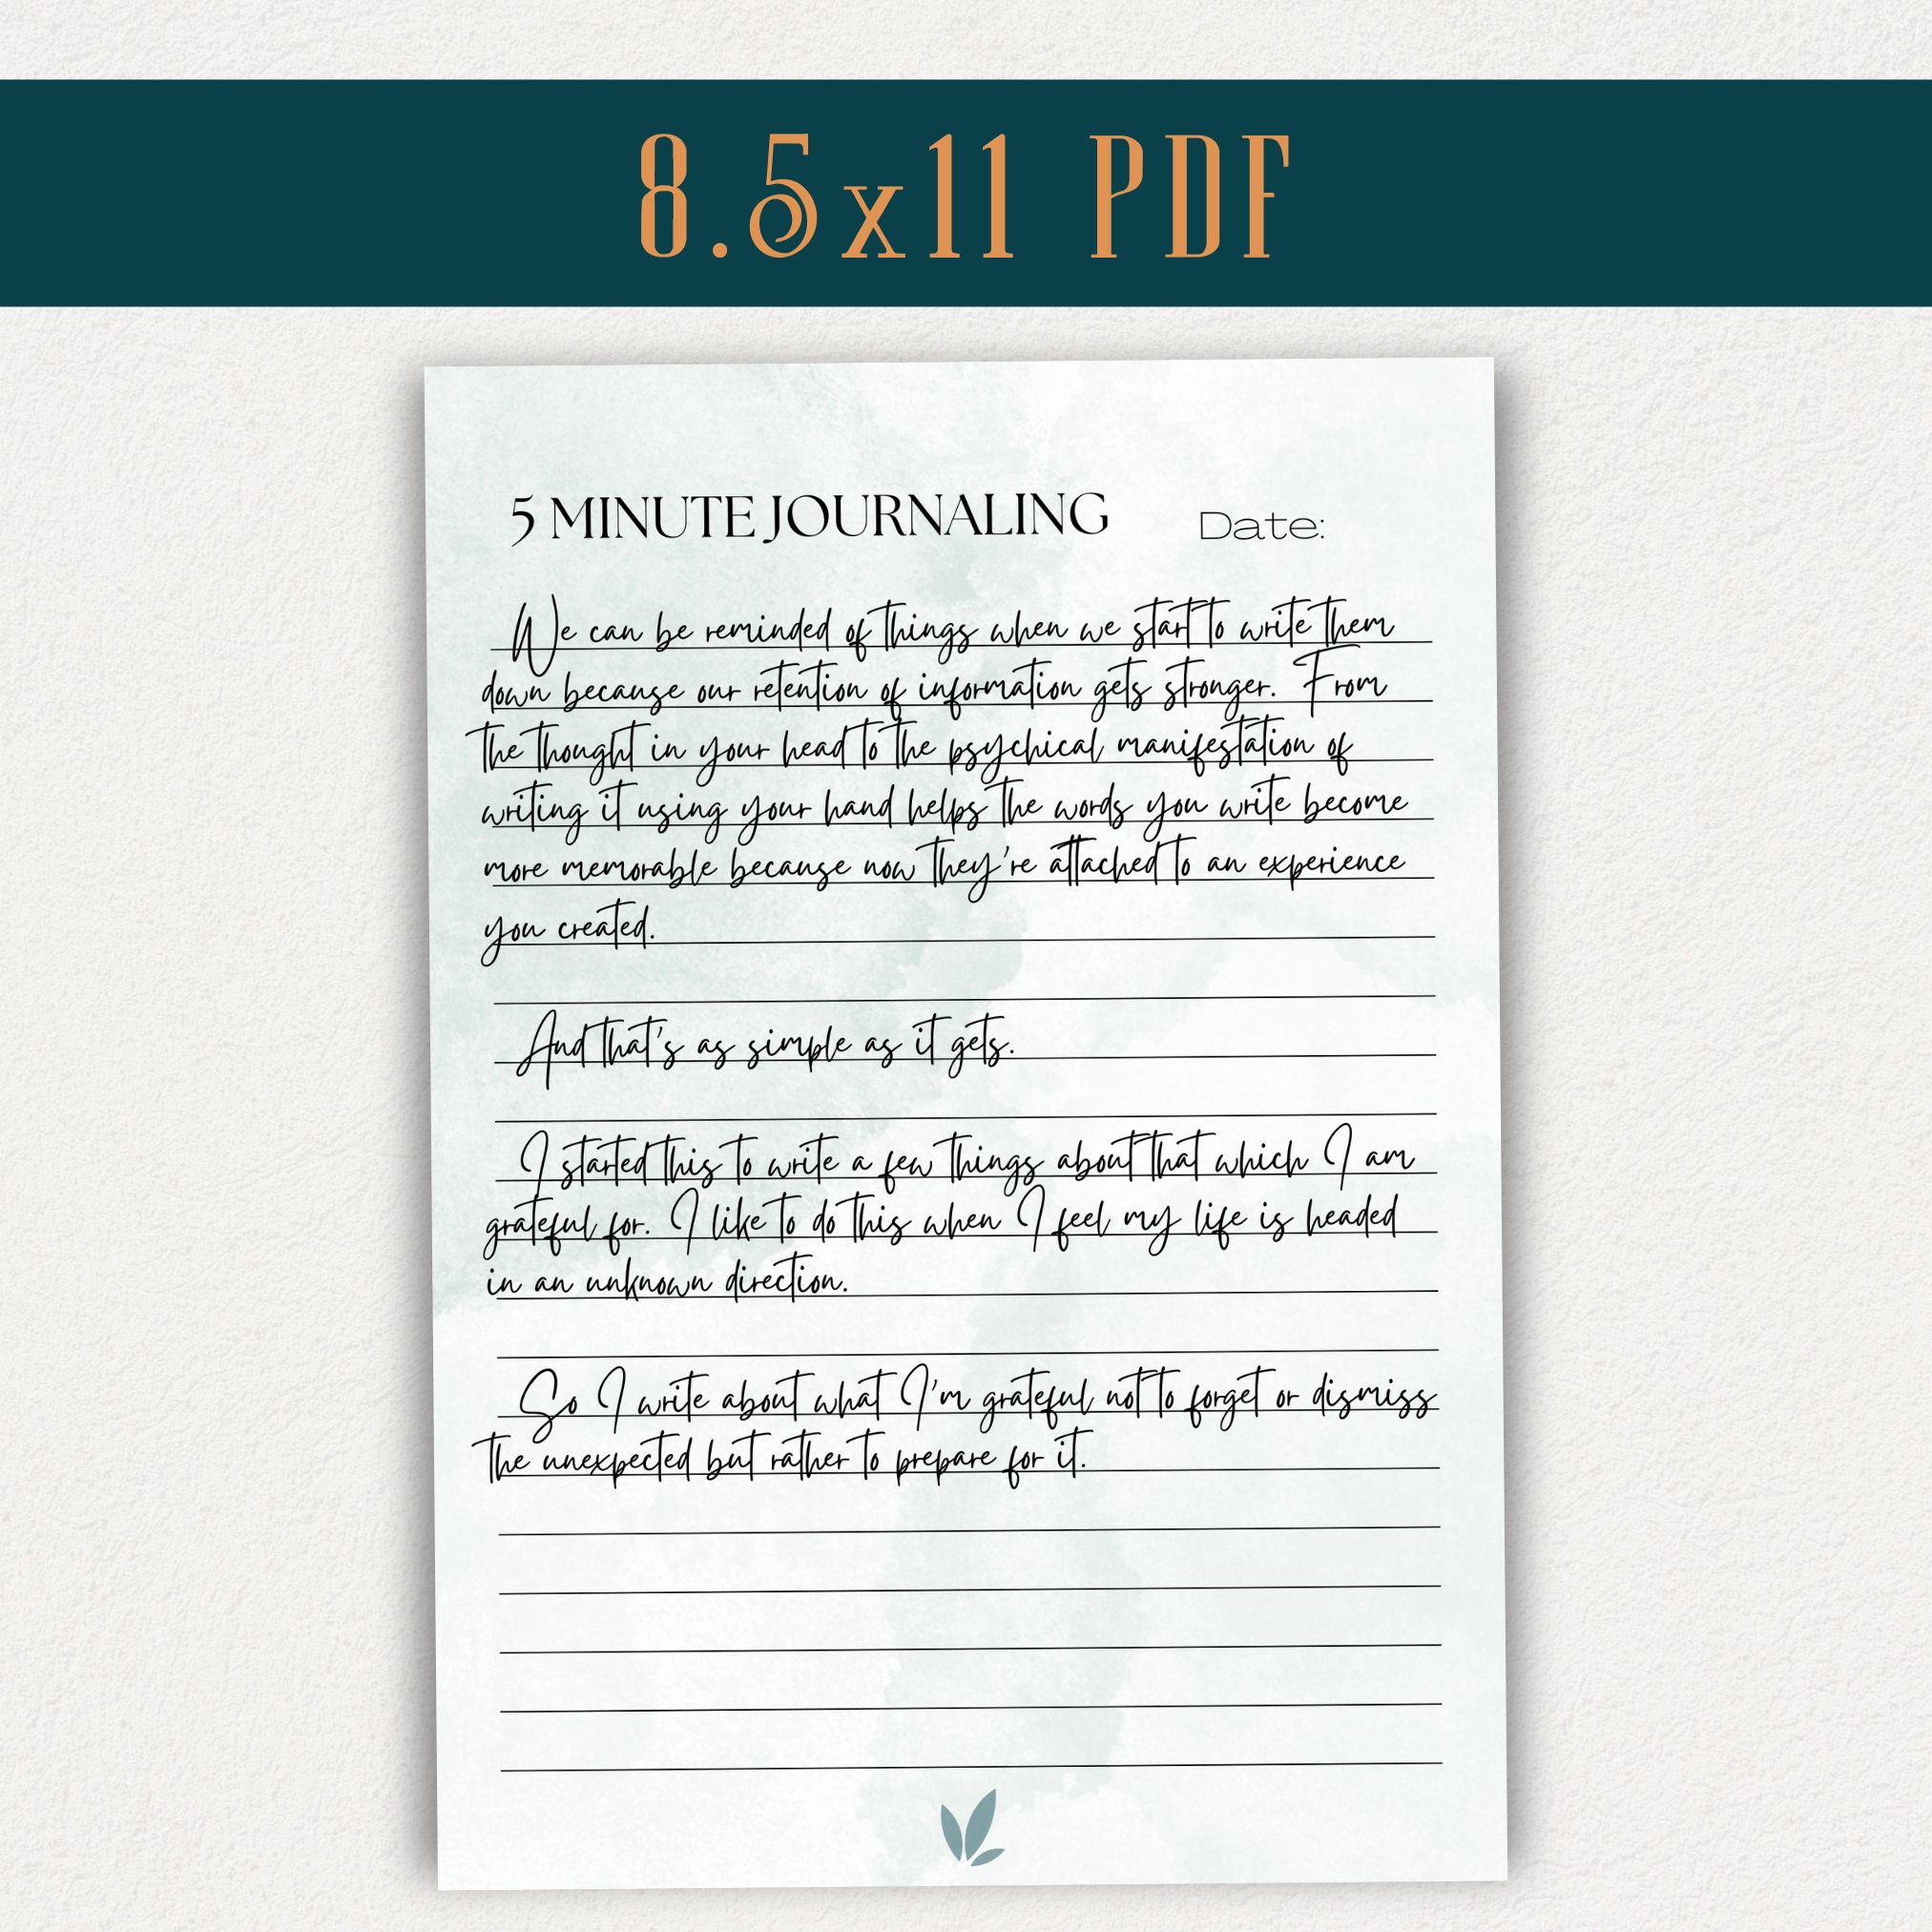 8.5x11 PDF
5 MINUTE JOURNALING Date:
We can be reminded of things when we start to write them
down because our retention of information gets stronger. From
the thought in your head to the psychical manifestation of
writing it using your hand helps the words you write become
more memorable because now they're attached to an experience
you created.
And that's as simple as it gets.
I started this to write a few things about that which I am
grateful for. I like to do this when I feel my life is headed
in an unknown direction.
So I write about what I'm grateful not to forget or dismiss
the unexpected but rather to prepare for it.